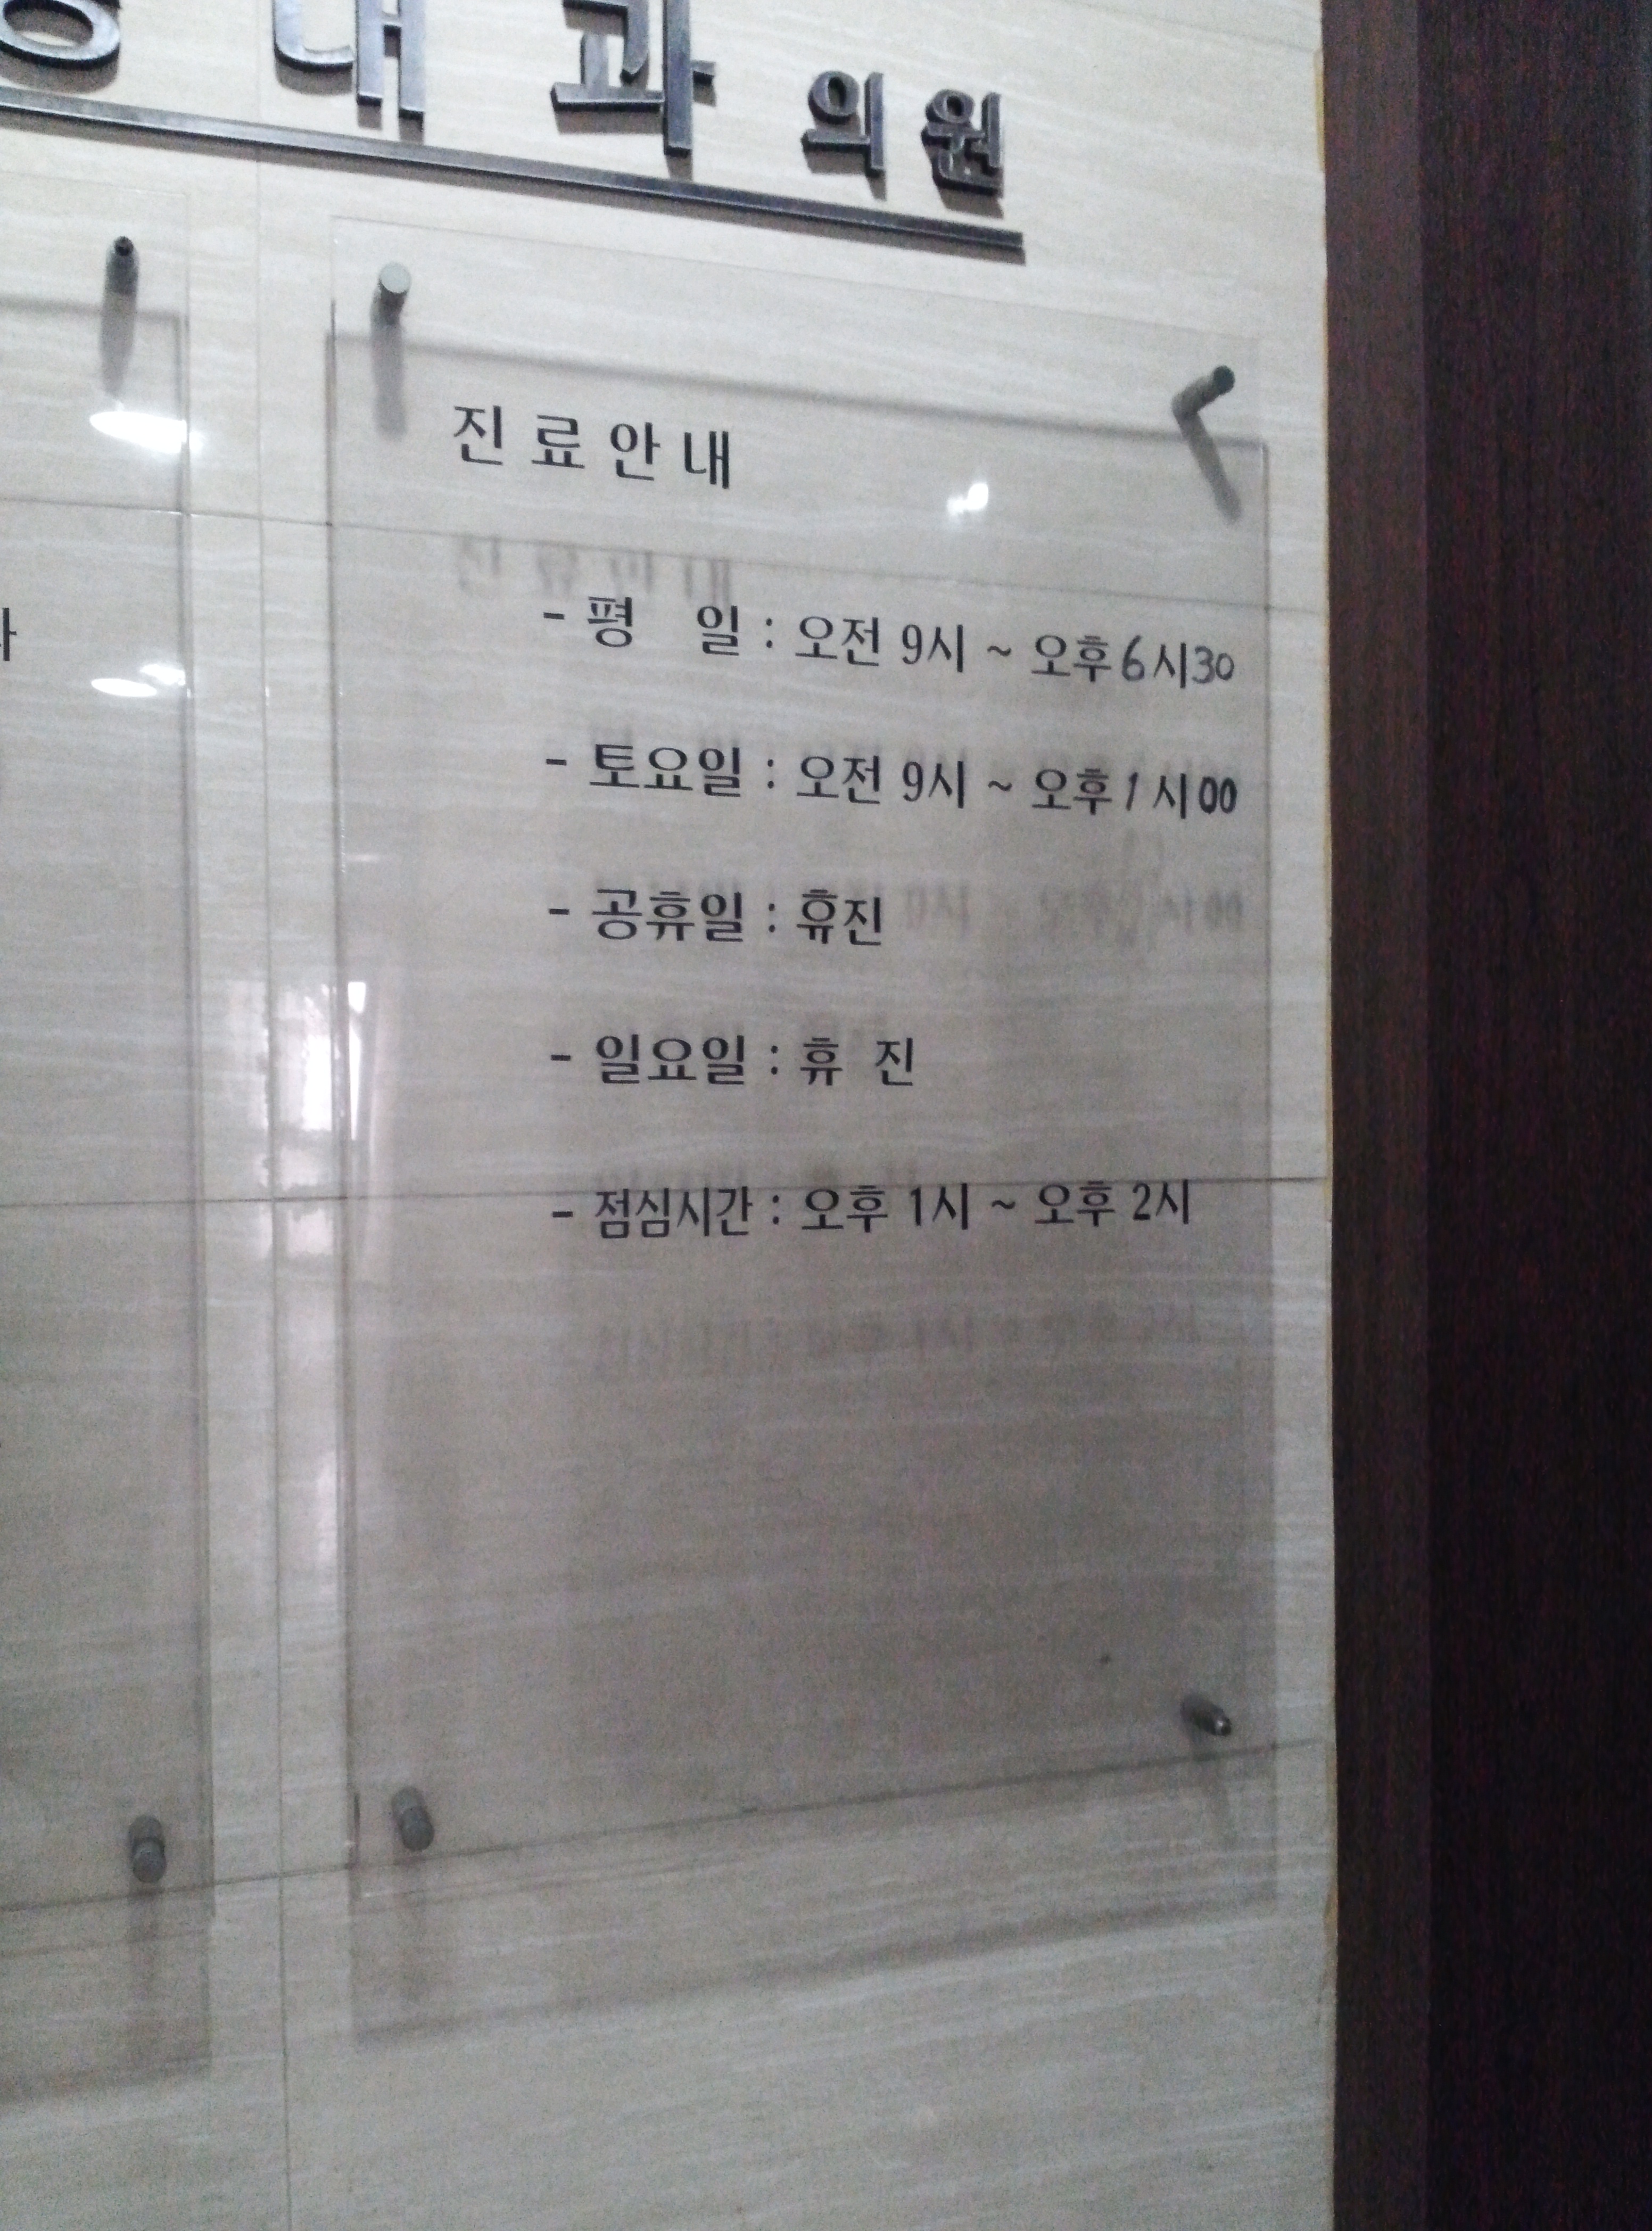 내과의원
진료안내
- 평 일 : 오전 9시 ~ 오후6시30
- 토요일 : 오전 9시 ~ 오후1시00
- 공휴일 : 휴진
- 일요일 : 휴 진
- 점심시간 : 오후 1시 ~ 오후 2시